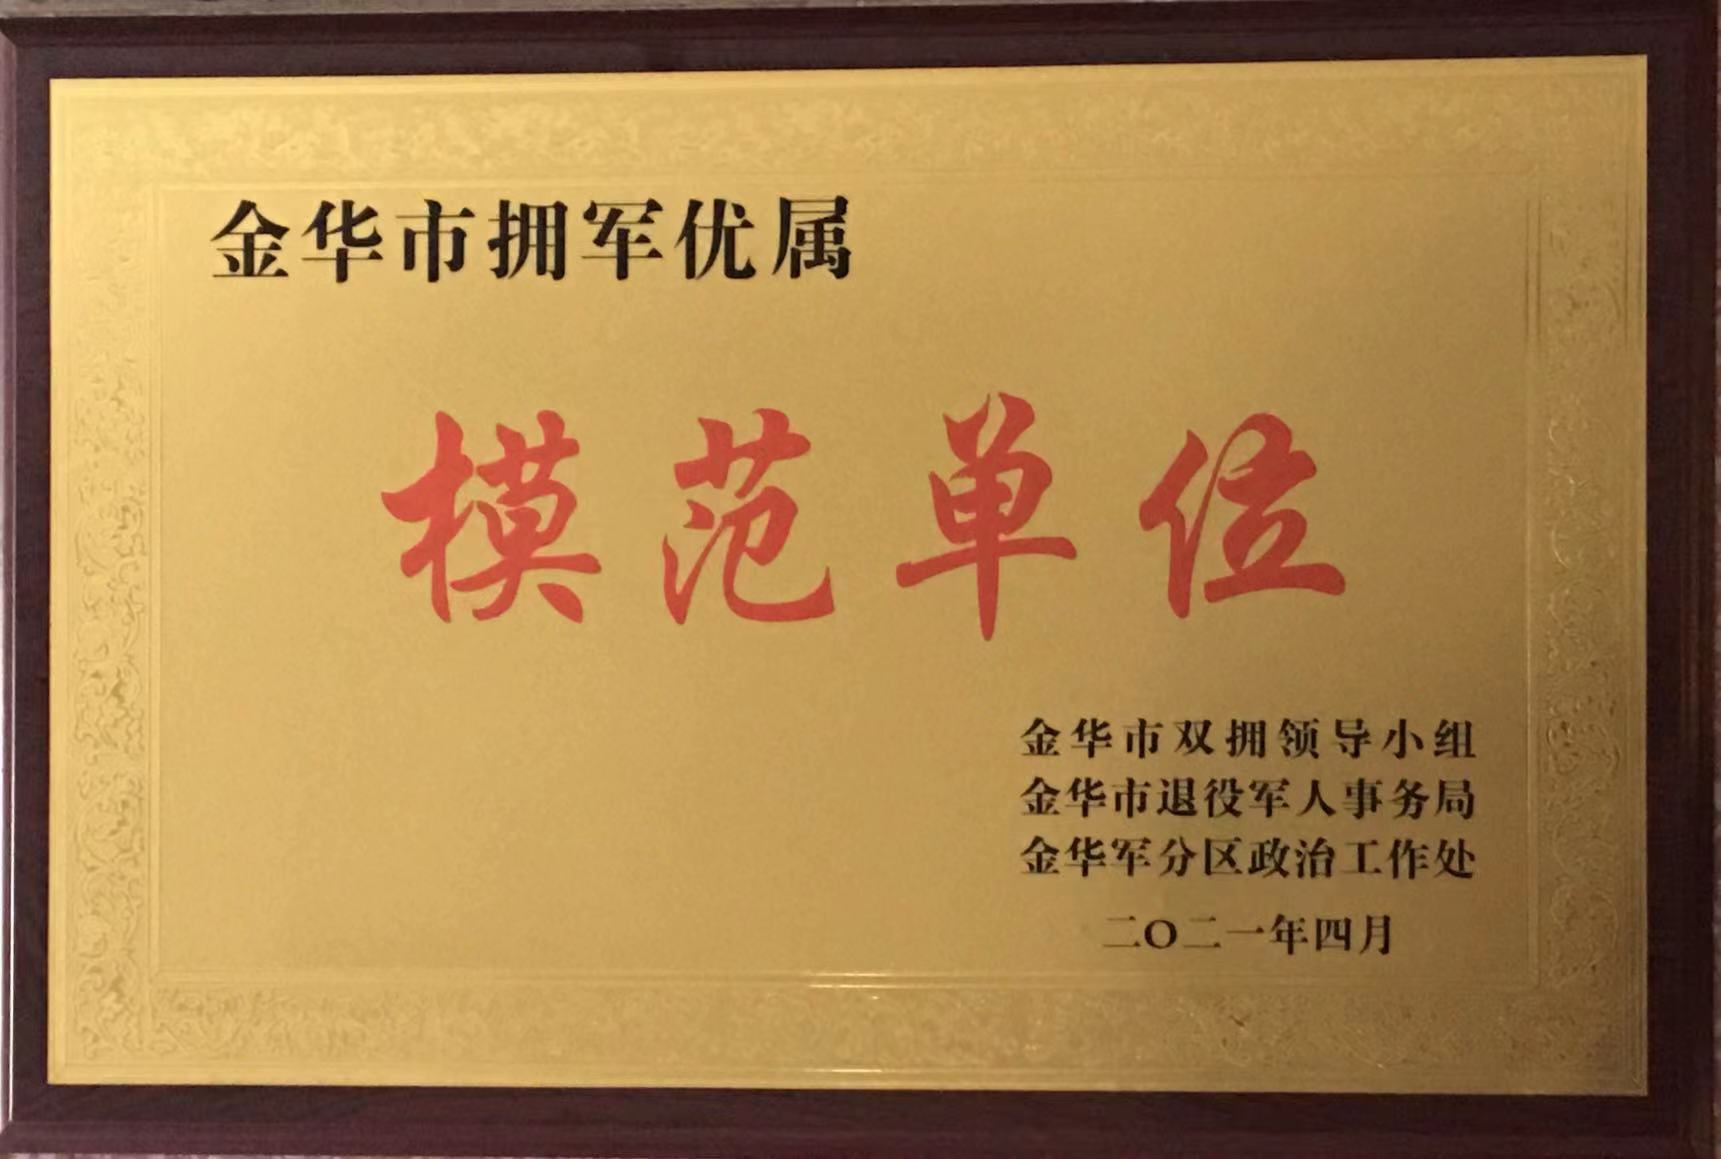 金华市拥军优属
模范单位
金华市双拥领导小组
金华市退役军人事务局
金华军分区政治工作处
二〇二一年四月